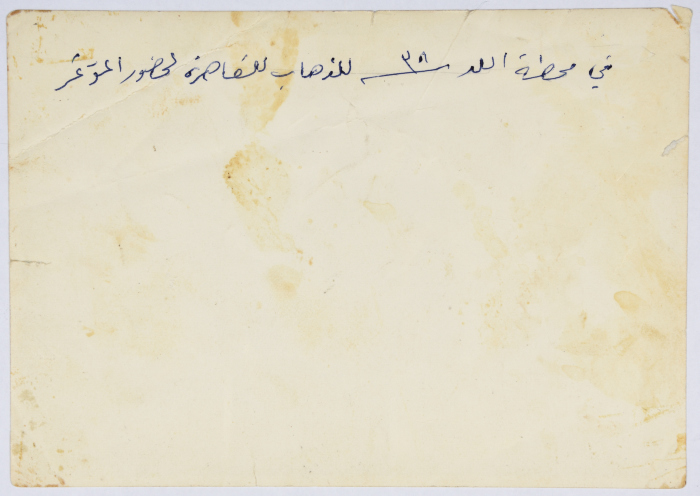 في محطة اللد ٣٨ للذهاب للقاهرة لحضور المؤتمر